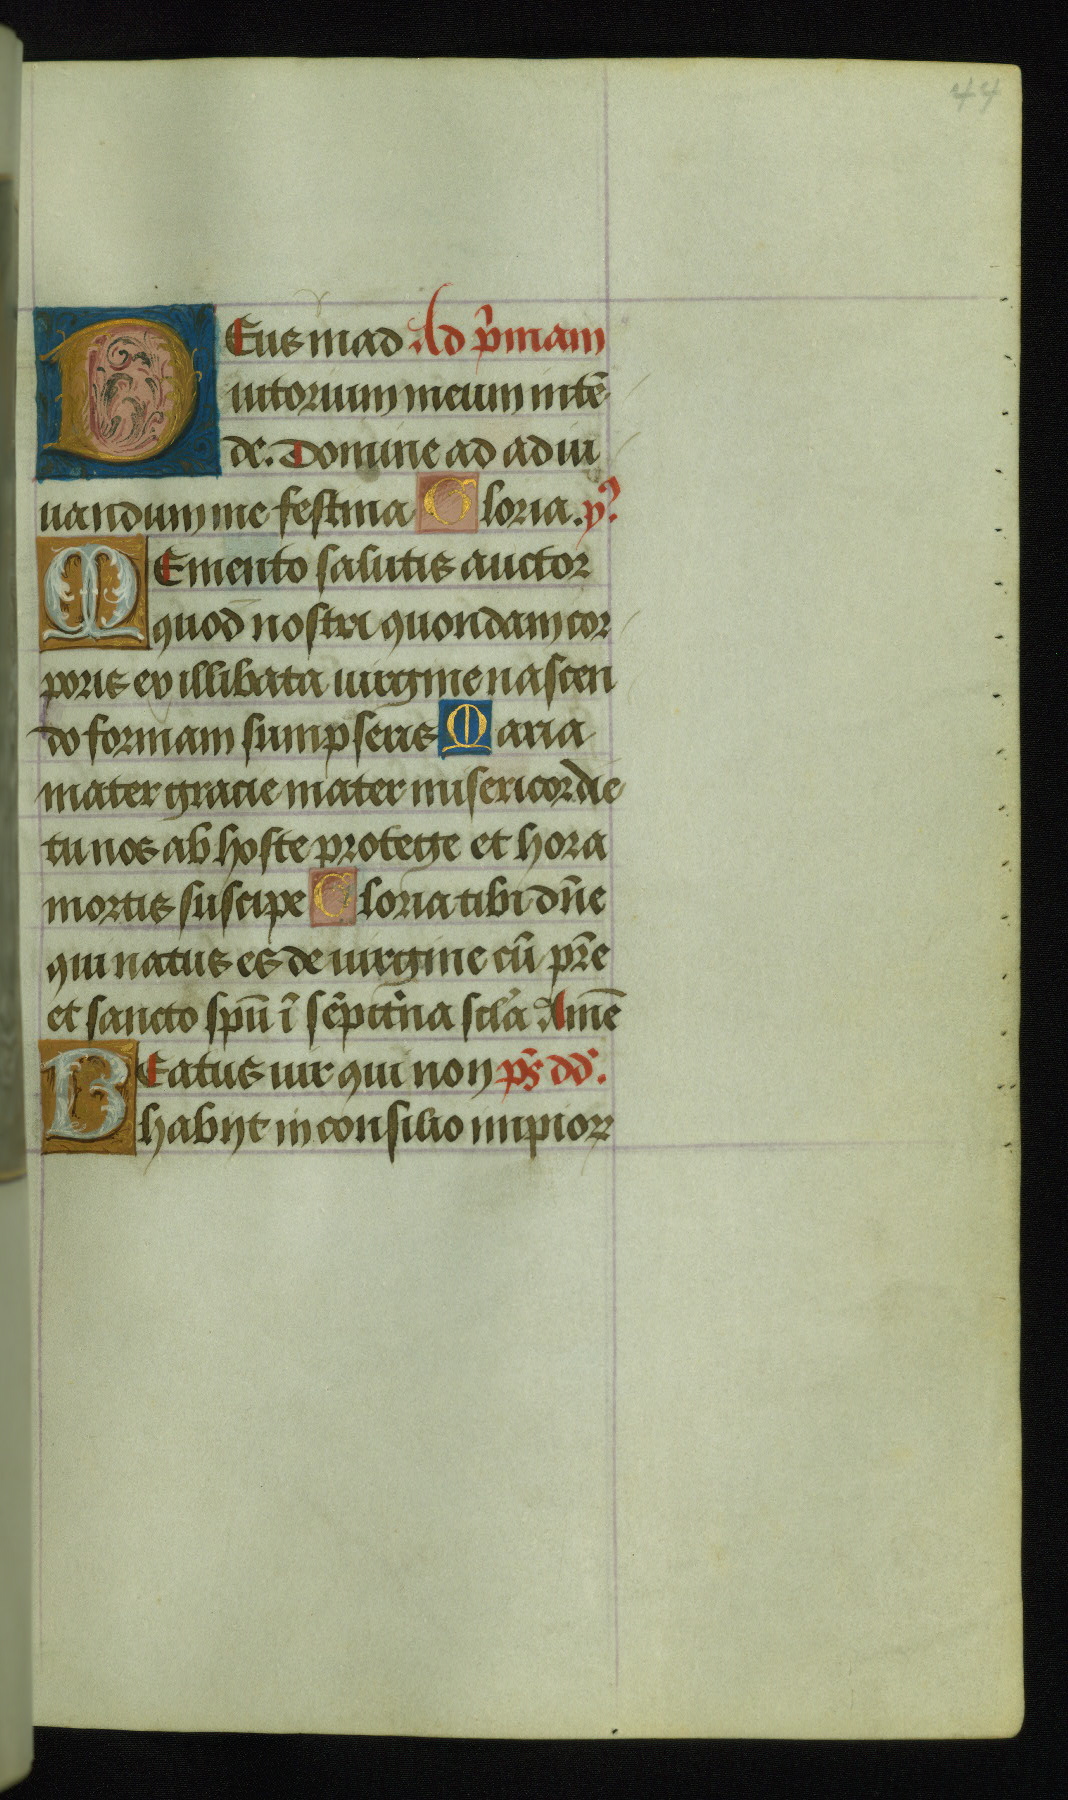 44
DEus in ad Ad p̄mam
iutorium meum inten̄
de. Domine ad adiu
uandum me festina Gloria. ȳ.
MEmento salutis auctor
quod nostri quondam cor
poris ex illibata uirgine nascen
do formam sumpseris Maria
mater gracie mater misericordie
tu nos ab hoste protege et hora
mortis suscipe Gloria tibi dn̄e
qui natus es de uirgine cū pr̄e
et sancto spū ī sēpit̄na scl̄a Amē
BEatus uir qui non ps̄ dd̄.
habijt in consilio impioꝝ